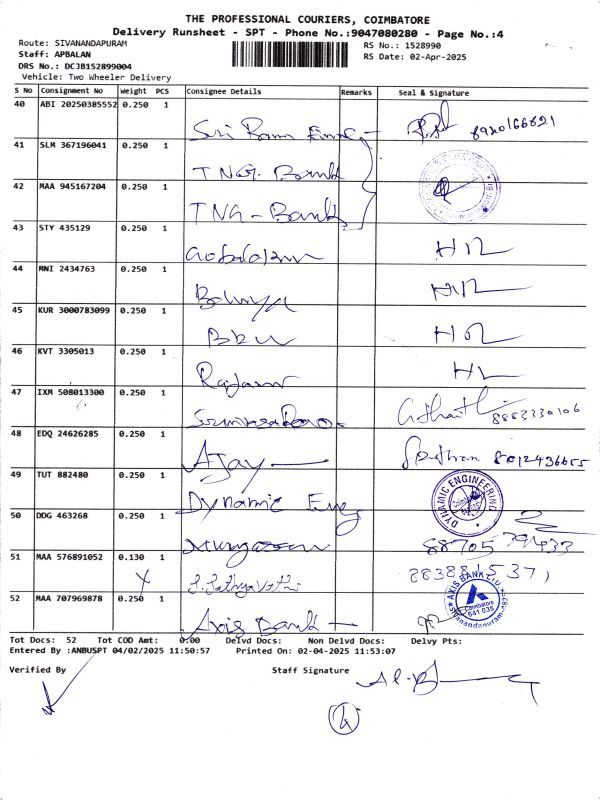 THE PROFESSIONAL COURIERS, COIMBATORE
Delivery Runsheet - SPT - Phone No.:9047080280 - Page No.:4
Route: SIVANANDAPURAM
RS No.: 1528990
Staff: APBALAN
RS Date: 02-Apr-2025
DRS No.: DCJB152899004
Vehicle: Two Wheeler Delivery
S No Consignment No Weight PCS Consignee Details Remarks Seal & Signature
40 ABI 20250385552 0.250 1
Sri Ram
41 SLM 367196041 0.250 1
TNG. Bank
42 MAA 945167204 0.250 1
TNG - Bank
43 STY 435129 0.250 1
44 MNI 2434763 0.250 1
45 KUR 3000783099 0.250 1
46 KVT 3305013 0.250 1
47 IXM 508013300 0.250 1
8883330106
48 EDQ 24626285 0.250 1
Ajay 8012436655
49 TUT 882480 0.250 1
Dynamic Eng
DYNAMIC ENGINEERING
50 DDG 463268 0.250 1
Murugesan
51 MAA 576891052 0.130 1
52 MAA 707969878 0.250 1
Axis Bank
AXIS BANK LTD
Coimbatore
641 035
Tot Docs: 52 Tot COD Amt: 0.00 Delvd Docs: Non Delvd Docs: Delvy Pts:
Entered By :ANBUSPT 04/02/2025 11:50:57 Printed On: 02-04-2025 11:53:07
Verified By Staff Signature